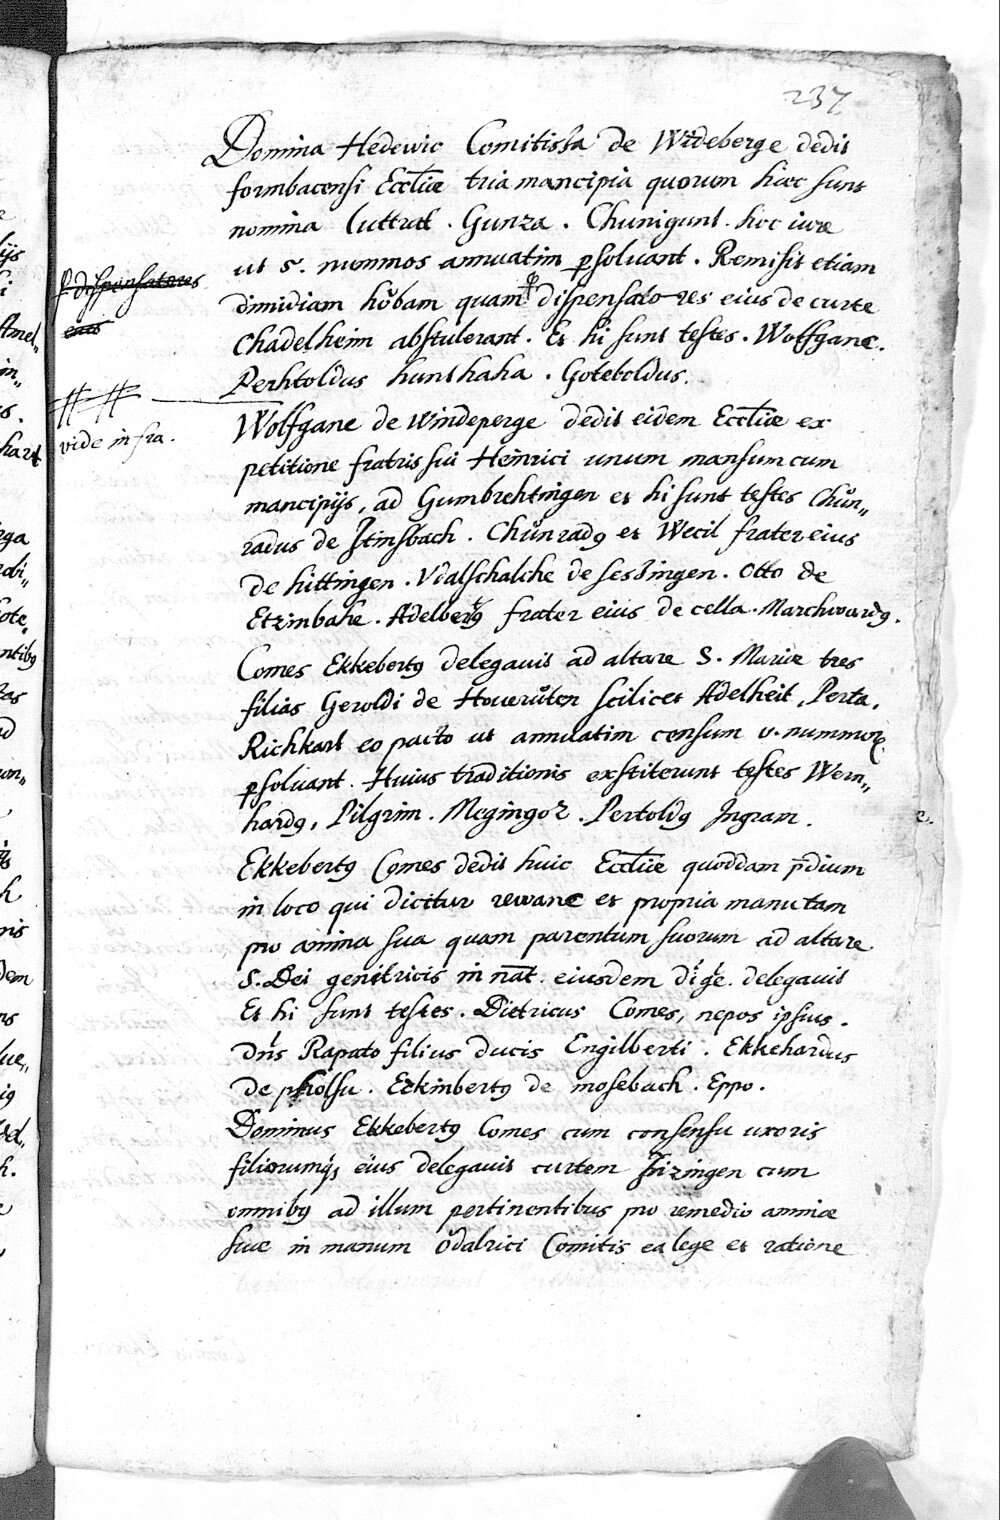 237
Domina Hedewic Comitissa de Wideberge dedit
formbacensi Eccliæ tria mancipia quorum hæc sunt
nomina Luttrat. Gunza. Chunigunt. hoc iure
ut 5. nummos annuatim psoluant. Remisit etiam
dimidiam hůbam quam dispensatores eius de curte
Chadelheim abstulerant. Et hi sunt testes. Wolfganc.
Perhtoldus hunthaha. Goteboldus.
Wolfganc de Windeperge dedit eidem Eccliæ ex
petitione fratris sui Heinrici unum mansum cum
mancipijs, ad Gumbrehtingen et hi sunt testes Chůn„
radus de Stinsbach. Chůnradꝯ et Wecil frater eius
de hittingen. Vdalschalche de seszingen. Otto de
Etzinbahe. Adelbertꝯ frater eius de cella. Marchwardꝯ.
Comes Ekkebertꝯ delegavit ad altare S. Mariæ tres
filias Geroldi de Houerůten scilicet Adelheit, Perta,
Richkart eo pacto ut annuatim censum v. nummorꝝ
psoluant. Huius traditionis exstiterunt testes Wern„
hardꝯ, Pilgrim. Megingoz. Pertoldꝯ Ingram.
Ekkebertꝯ Comes dedit huic Eccliæ quoddam p̄dium
in loco qui dicitur rewanc et propria manu tam
pro anima sua quam parentum suorum ad altare
S. Dei genitricis in nat. eiusdem delegavit
Et hi sunt testes. Dietricus Comes, nepos ipsius.
Dn̄s Rapato filius ducis Engilberti. Ekkehardus
de pholsu. Erkinbertꝯ de mosebach. Eppo.
Dominus Ekkebertꝯ Comes cum consensu uxoris
filiorumq; eius delegavit curtem Hizingen cum
omnibꝯ ad illum pertinentibus pro remedio animæ
suæ in manum Ődalrici Comitis ea lege et ratione
dispensatores
eius
vide infra.